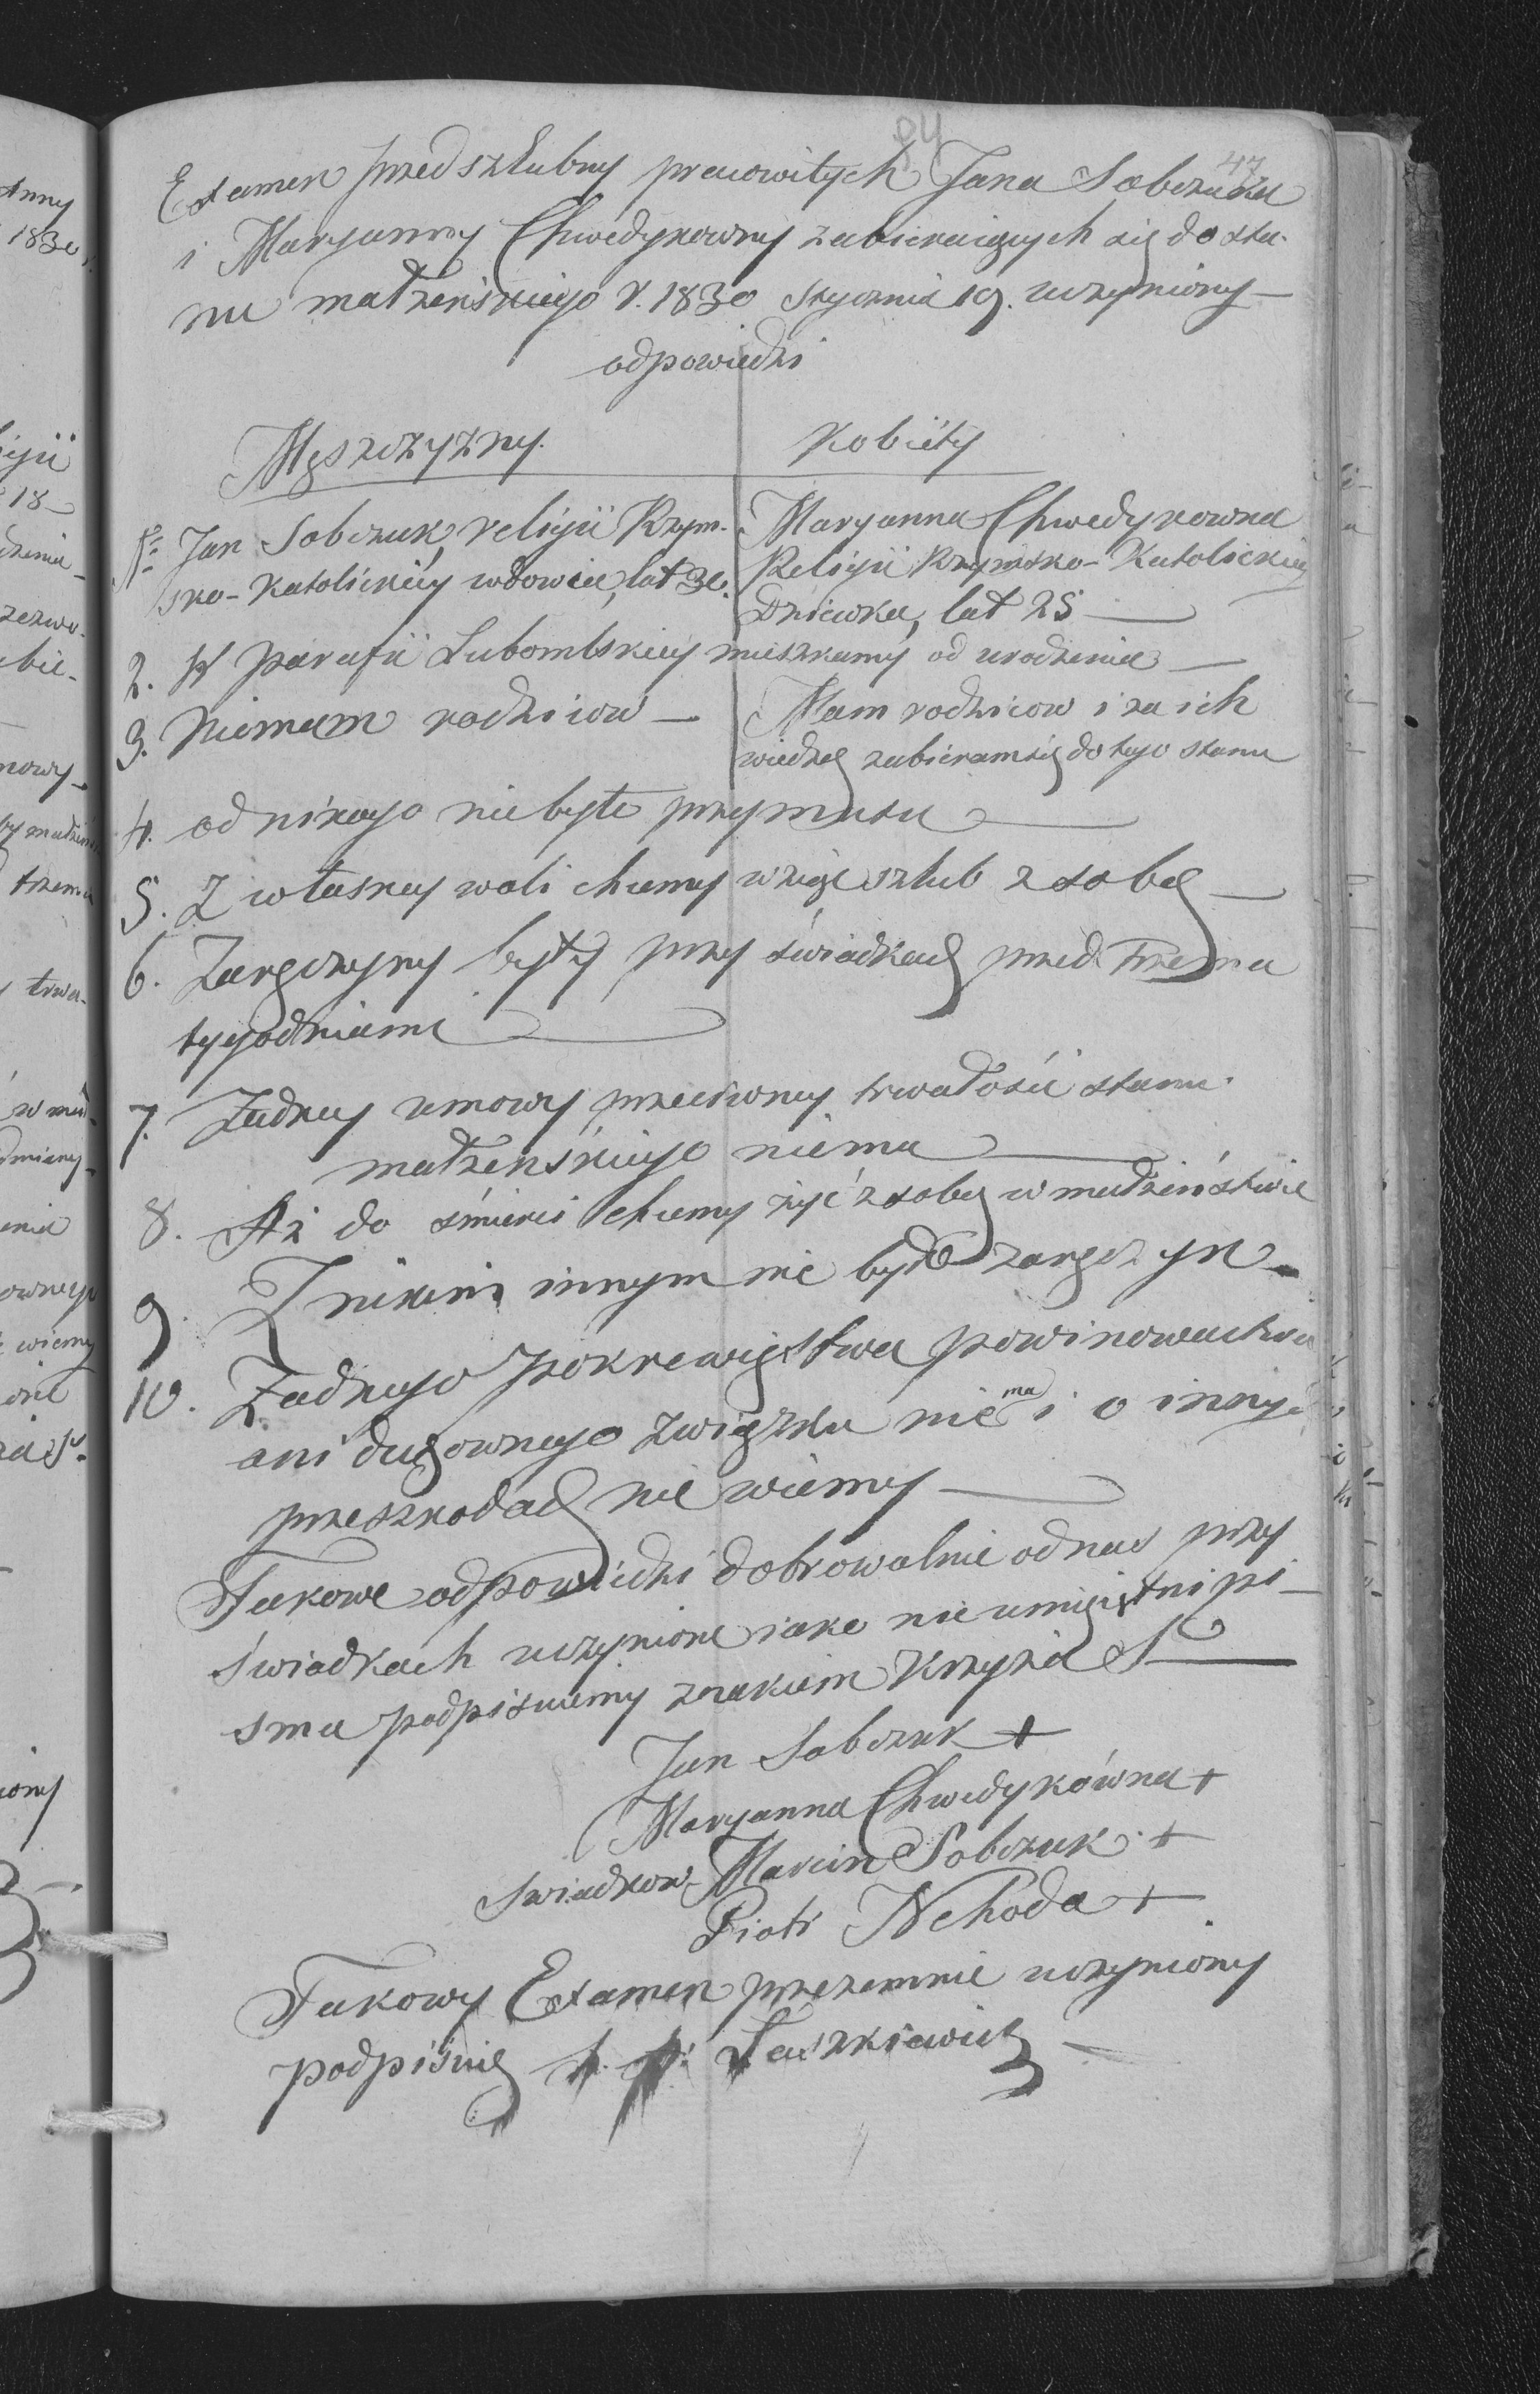 84
47
Examen przedszlubny pracowitych Jana Sobczuka
i Maryanny Chwedykowny zabieraiących się do sta-
nu małżeńskiego r. 1830 Stycznia 19. uczyniony —
odpowiedzi
Męszczyzny.
Kobiéty
1. Jan Sobczuk, religii Rzym-
sko-Katolickiey wdowiec, lat 30.
Maryanna Chwedykowna
Religii Rzymsko-Katolickiey
Dziewka, lat 25 —
2. W parafii Lubomlskiey mieszkamy od urodzenia —
3. Niemam rodziców —
Mam rodziców i za ich
wiedzą zabieramsię do tego stanu
4. od nikogo niebyło przymusu —
5. Z własney woli chcemy wziąć szlub z sobą —
6. Zaręczyny były przy świadkach przed trzema
tygodniami —
7. Żadney umowy przeciwney trwałości stanu
małżeńskiego niema —
8. Aż do śmierci chcemy żyć z sobą w małżeństwie
9. Z nikim innym nie było zaręczyn —
10. Żadnego pokrewięstwa powinowactwa
ani duchownego związku nie ma i o innych
przeszkodach nie wiemy —
Takowe odpowiedzi dobrowolnie od nas przy
świadkach uczynione iako nie umieiętni pi-
sma podpisuiemy znakiem Krzyża S —
Jan Sobczuk +
Maryanna Chwedykówna +
Swiadkow Marcin Sobczuk +
Piotr Nehoda +
Takowy Examen przezemnie uczyniony
podpisuię
Anny
1830
18